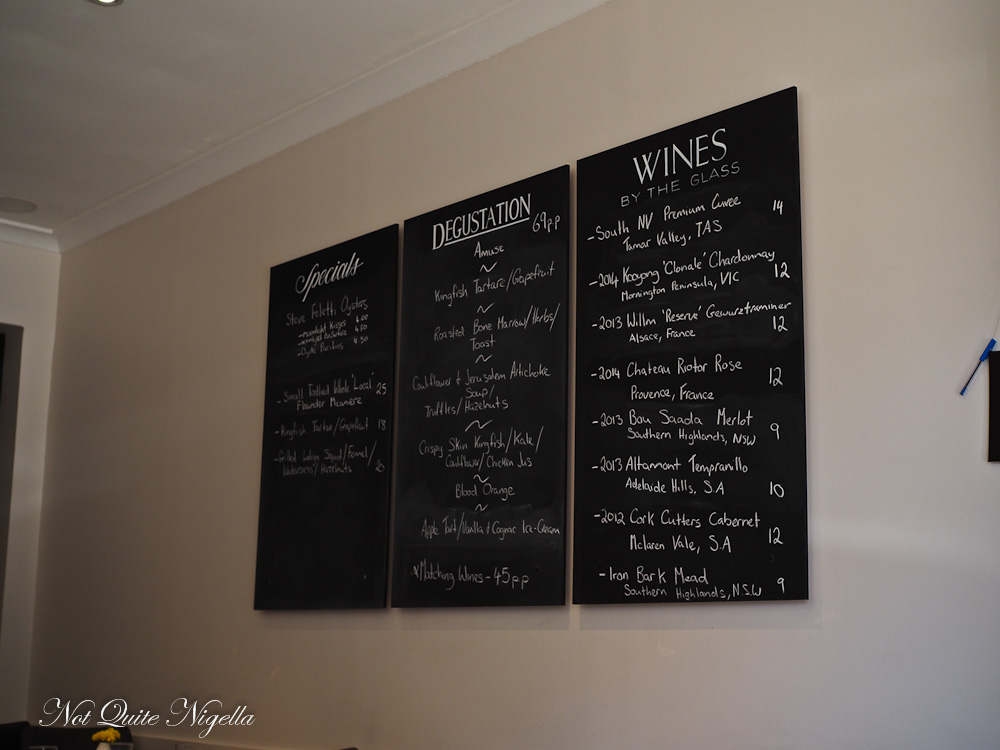 Specials
Steve Feletti Oysters
- Moonlight Kisses 4.00
4.50
4.50
- Small Tinthed Whole 'Local' 25
Flounder Meuniere
- Kingfish Tartare/Grapefruit 18
- Grilled Squid/Fennel/
Watercress/Hazelnuts 20
DEGUSTATION
69pp
Amuse
Kingfish Tartare/Grapefruit
Roasted Bone Marrow/Herbs/
Toast
Cauliflower & Jerusalem Artichoke
Soup/
Truffles/Hazelnuts
Crispy Skin Kingfish/Kale/
Cauliflower/Chicken Jus
Blood Orange
Apple Tart/Vanilla & Cognac Ice-Cream
Matching Wines - 45pp
WINES
BY THE GLASS
- South NV Premium Cuvee 14
Tamar Valley, TAS
- 2014 Kooyong 'Clonale' Chardonnay
Mornington Peninsula, VIC 12
- 2013 Willm 'Reserve' Gewurztraminer
Alsace, France 12
- 2014 Chateau Riotor Rose
Provence, France 12
- 2013 Bou Saada Merlot
Southern Highlands, NSW 9
- 2013 Altamont Tempranillo
Adelaide Hills, S.A 10
- 2012 Cork Cutters Cabernet
Mclaren Vale, S.A 12
- Iron Bark Mead
Southern Highlands, N.S.W 9
Not Quite Nigella